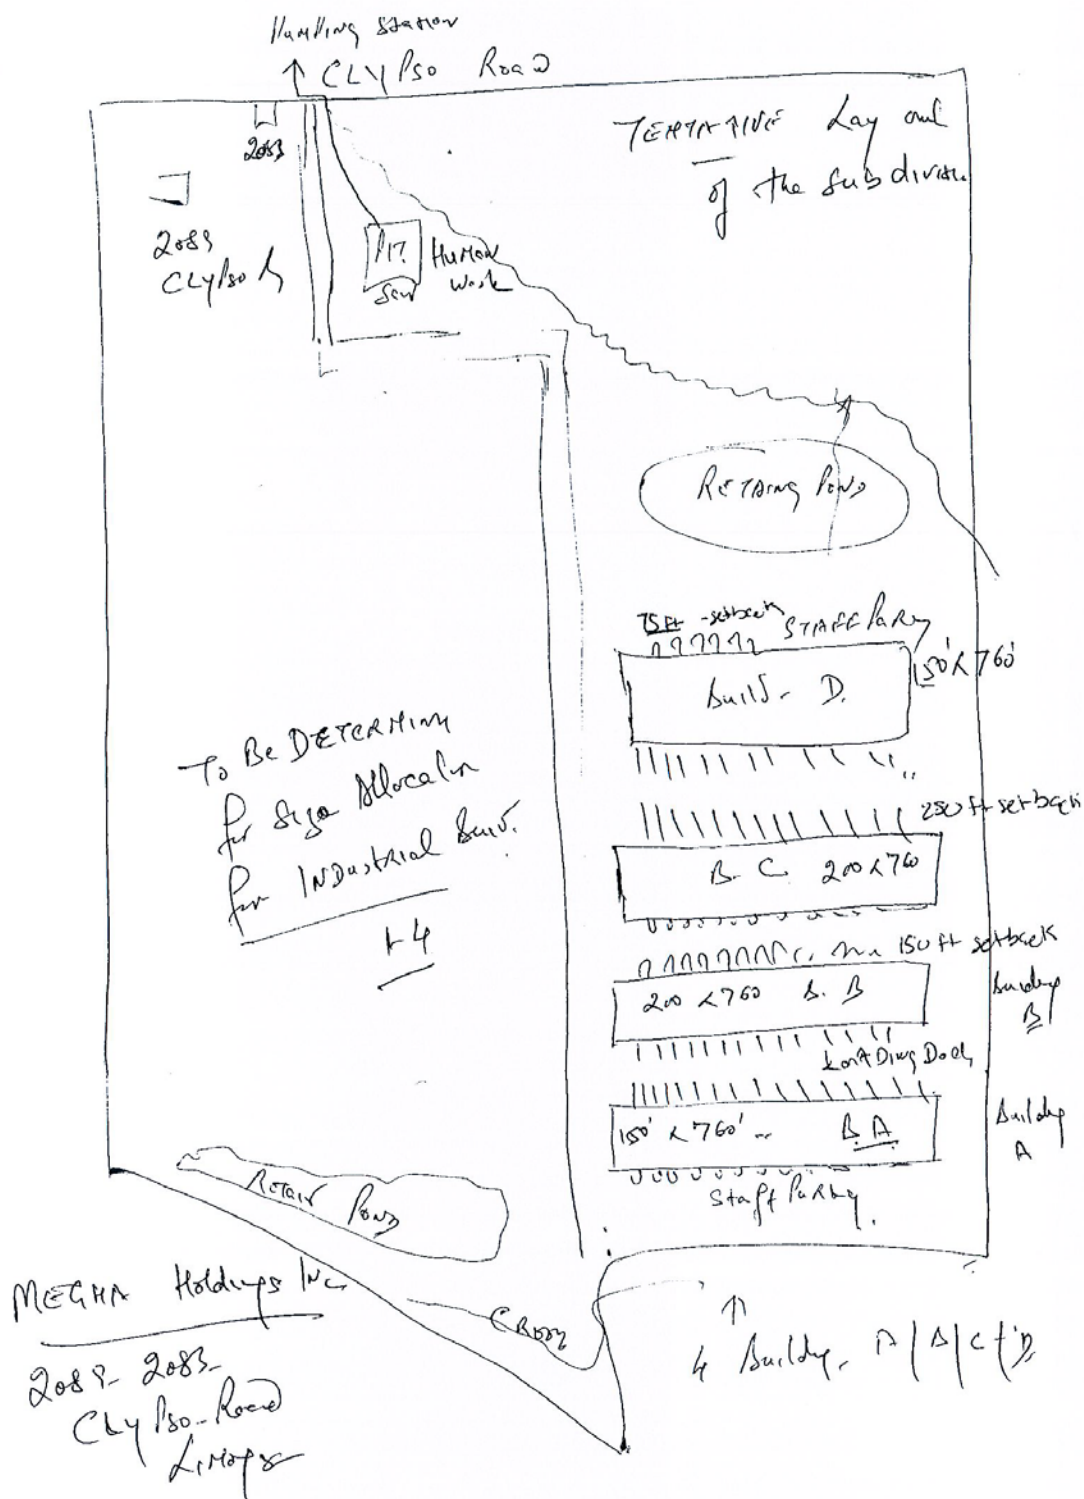 Station
↑ CLYPso Road
2083
TENTATIVE Lay out
of the subdivision
2089
CLYPso R
PIT
Human
Work
RETAING PoND
75 Ft -setback STAFF Parg
Build. D.
150' x 760'
To Be DETERMINE
for Size Allocation
for INDustrial Build.
1-4
250 ft setback
B. C. 200 x 760
150 ft setback
200 x 760 B. B
Building
B
LoADing Dock
150' x 760' B.A
Building
A
Staff Parking
Retain Pond
MEGHA Holdings INC
↑
4 Building. A/B/C/D
2083-
CLYPso-Road